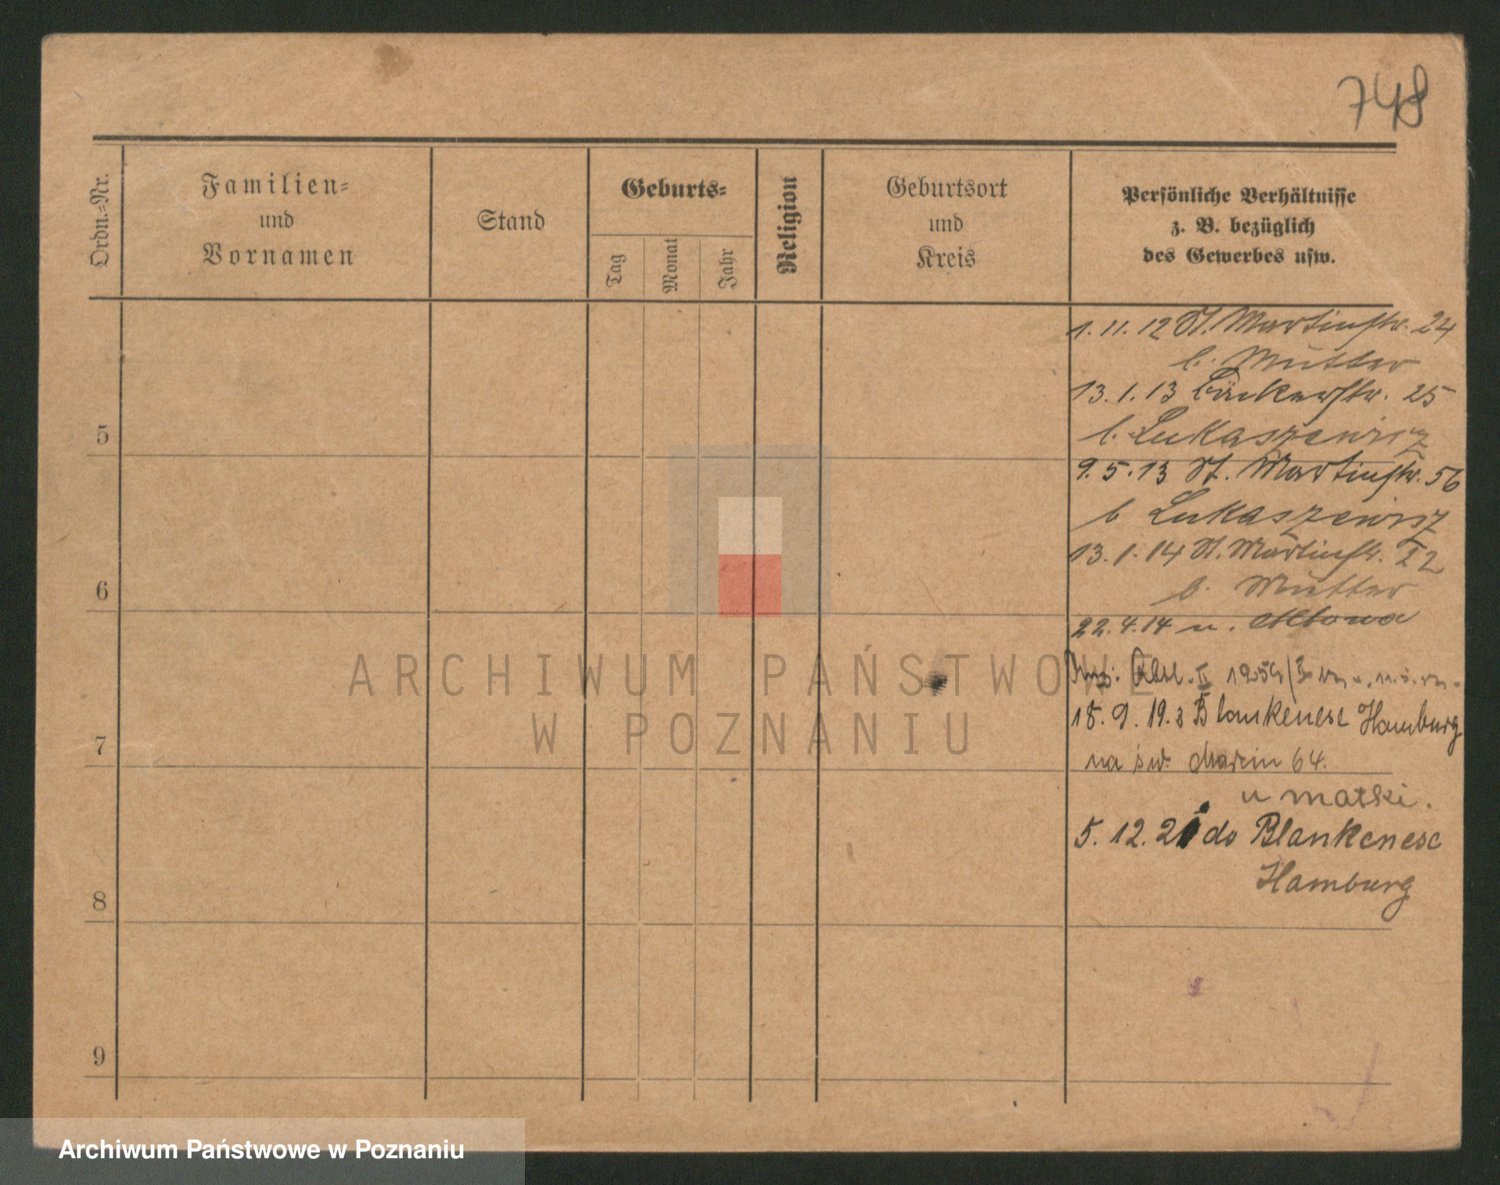 748
Ordn.-Nr.
Familien-
und
Vornamen
Stand
Geburts-
Tag
Monat
Jahr
Religion
Geburtsort
und
Kreis
Persönliche Verhältnisse
z. B. bezüglich
des Gewerbes usw.
1. 11. 12 St. Martinstr. 24
b. Mutter
13. 1. 13 Bäckerstr. 25
b. Lukaszewicz
5
9. 5. 13 St. Martinstr. 56
b Lukaszewicz
13. 1. 14 St. Martinstr. 22
b. Mutter
6
22. 4. 14 n. Altona
18. 9. 19. z Blankenese Hamburg
na św. Marcin 64.
7
u matki.
5. 12. 21 do Blankenese
Hamburg
8
9
ARCHIWUM PAŃSTWOWE
W POZNANIU
Archiwum Państwowe w Poznaniu